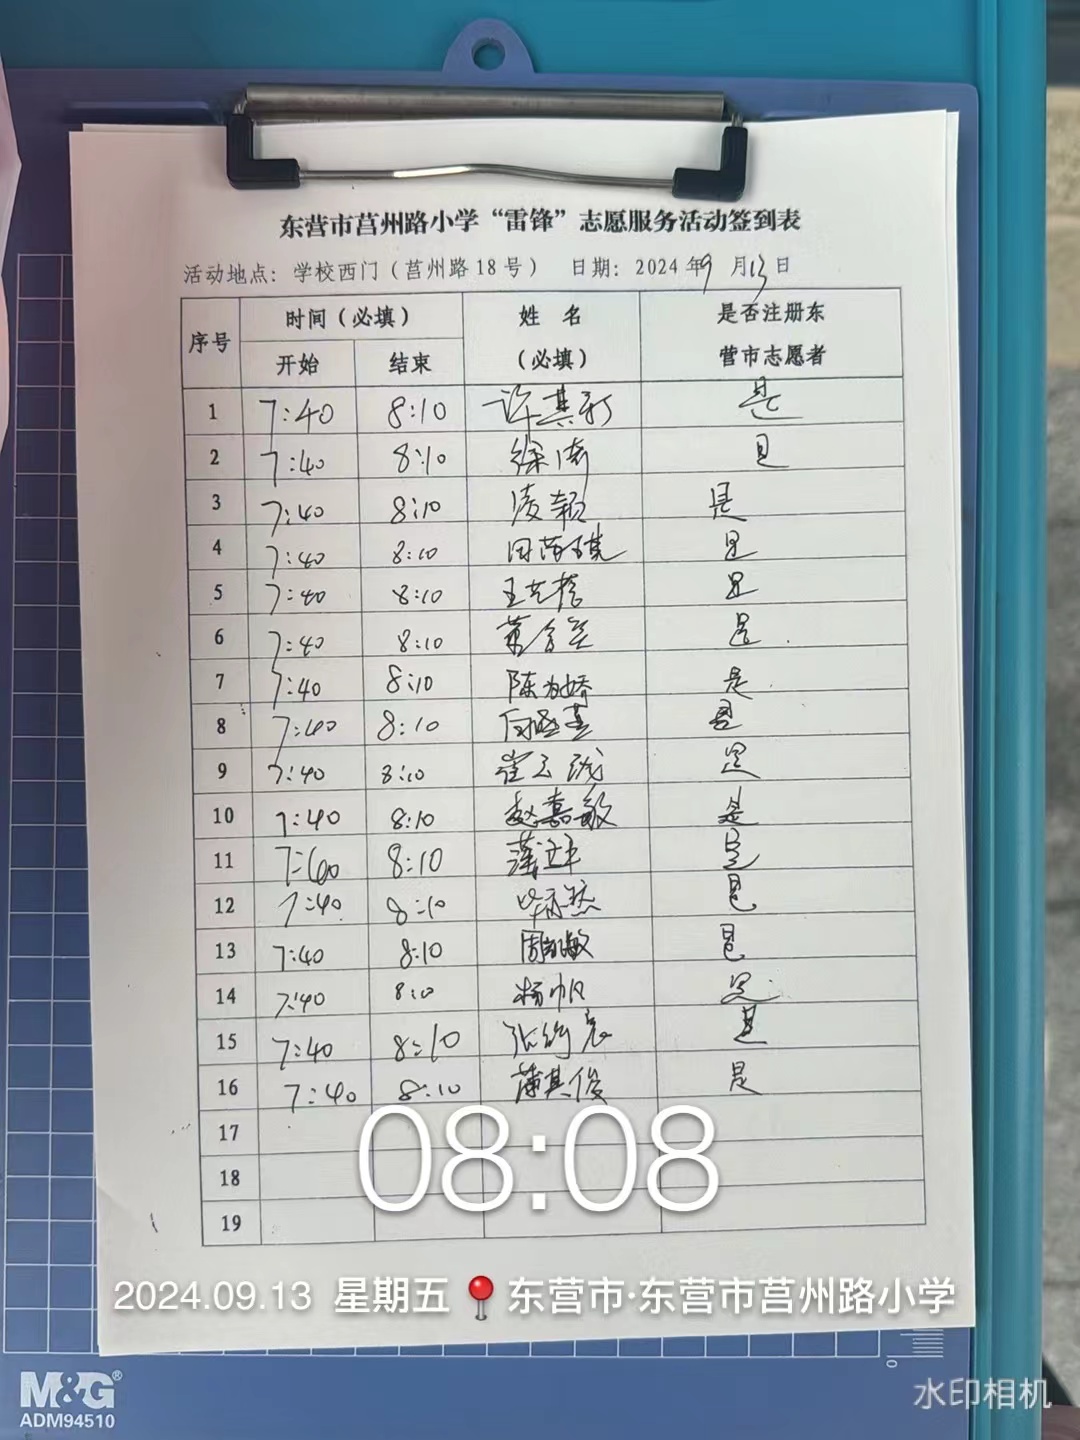 东营市莒州路小学“雷锋”志愿服务活动签到表
活动地点：学校西门（莒州路18号） 日期：2024年9月13日
序号 时间（必填） 姓名（必填） 是否注册东营市志愿者
开始 结束
1 7:40 8:10 许其新 是
2 7:40 8:10 徐倩 是
3 7:40 8:10 凌颖 是
4 7:40 8:10 是
5 7:40 8:10 王 是
6 7:40 8:10 是
7 7:40 8:10 陈 娇 是
8 7:40 8:10 是
9 7:40 8:10 崔 是
10 7:40 8:10 赵嘉敏 是
11 7:40 8:10 是
12 7:40 8:10 毕 然 是
13 7:40 8:10 周 敏 是
14 7:40 8:10 杨帆 是
15 7:40 8:10 张 是
16 7:40 8:10 薄其俊 是
17
18
19
08:08
2024.09.13 星期五 东营市·东营市莒州路小学
M&G®
ADM94510
0
水印相机